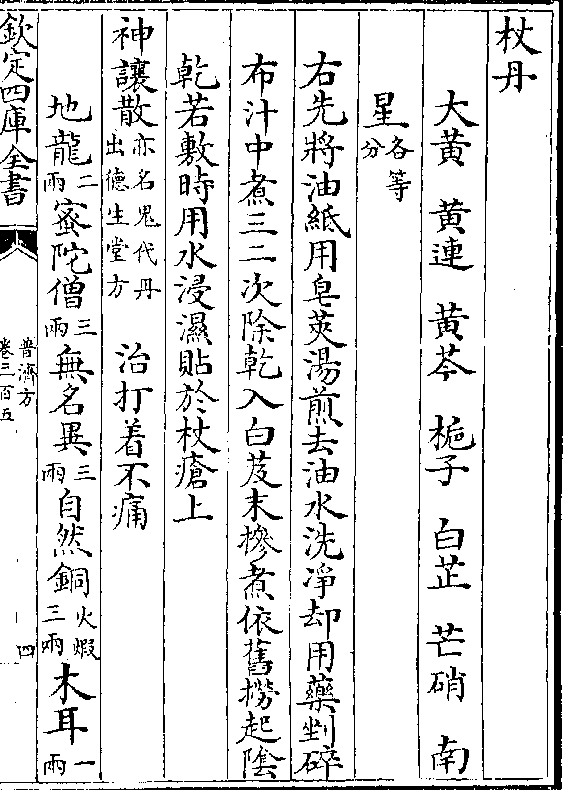 杖丹
大黄　黄連　黄芩　梔子　白芷　芒硝　南
星各等分
右先將油紙用皂莢湯煎去油水洗凈却用藥剉碎
布汁中煮三二次除乾入白芨末摻煮依舊撈起陰
乾若敷時用水浸濕貼於杖瘡上
神讓散亦名鬼代丹出德生堂方　治打着不痛
地龍二兩蜜陀僧三兩無名異三兩自然銅火煅三兩木耳一兩
欽定四庫全書
普濟方
卷三百五
四